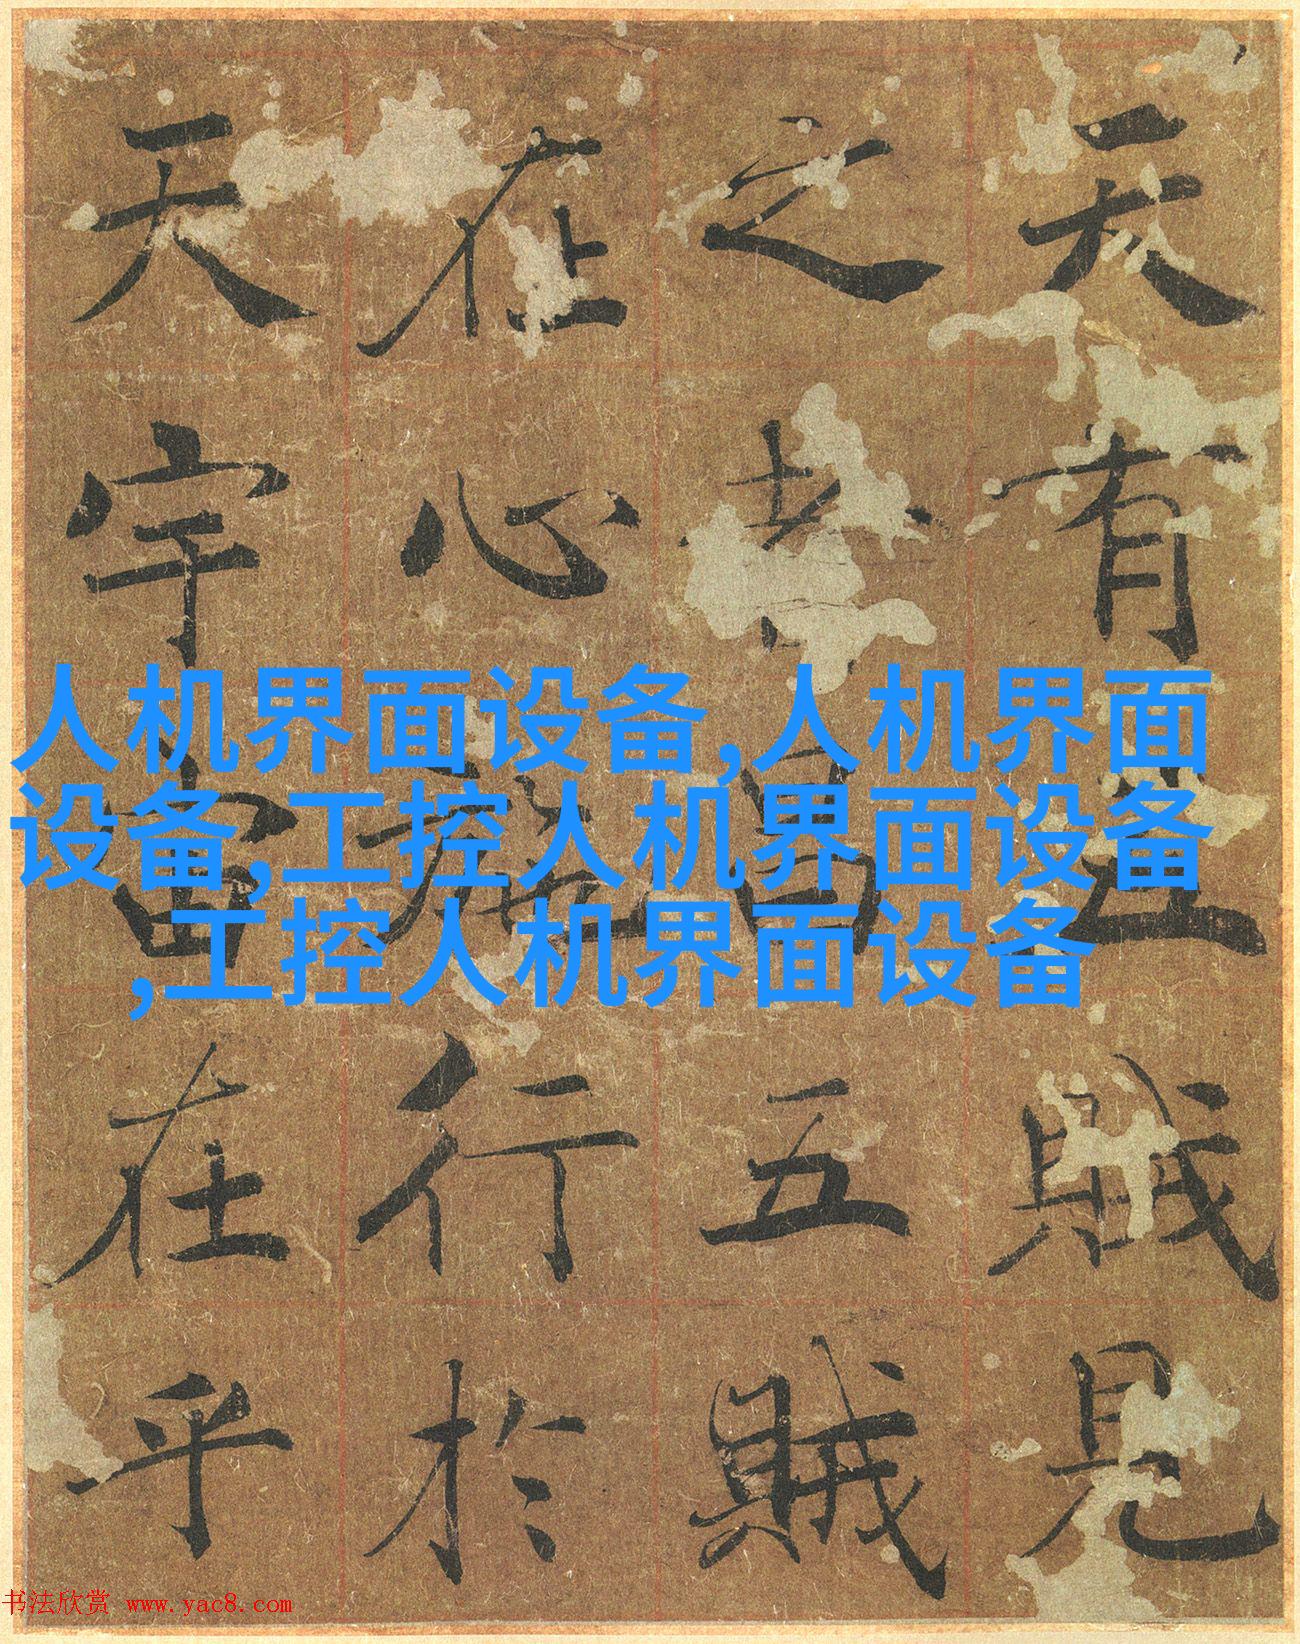 天有五賊見
之者昌五賊
在心施行於
天宇宙在乎
人机界面设备,人机界面
设备,工控人机界面设备
,工控人机界面设备
书法欣赏 www.yac8.com